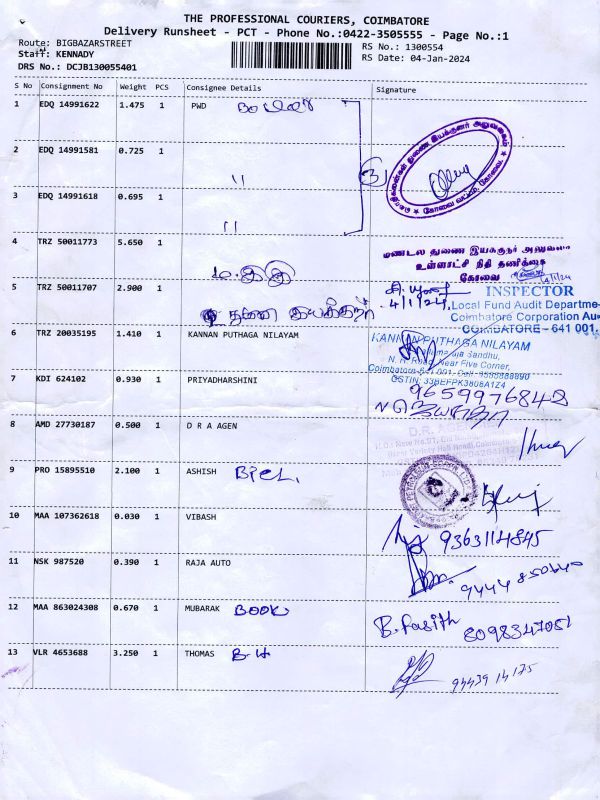 THE PROFESSIONAL COURIERS, COIMBATORE
Delivery Runsheet - PCT - Phone No.:0422-3505555 - Page No.:1
Route: BIGBAZARSTREET
Staff: KENNADY
DRS No.: DCJB130055401
RS No.: 1300554
RS Date: 04-Jan-2024
S No Consignment No Weight PCS Consignee Details Signature
1 EDQ 14991622 1.475 1 PWD
2 EDQ 14991581 0.725 1 "
3 EDQ 14991618 0.695 1 "
4 TRZ 50011773 5.650 1
மண்டல துணை இயக்குநர் அலுவலக
உள்ளாட்சி நிதி தணிக்கை
கோவை
5 TRZ 50011707 2.900 1 துணை இயக்குநர்
4/1/24
INSPECTOR
Local Fund Audit Departme
Coimbatore Corporation Au
COIMBATORE - 641 001.
6 TRZ 20035195 1.410 1 KANNAN PUTHAGA NILAYAM
KANNAN PUTHAGA NILAYAM
N. H. Road, Near Five Corner,
Coimbatore-641 001.
7 KDI 624102 0.930 1 PRIYADHARSHINI
9659976848
8 AMD 27730187 0.500 1 D R A AGEN
9 PRO 15895510 2.100 1 ASHISH BPCL.
10 MAA 107362618 0.030 1 VIBASH
9363114845
11 NSK 987520 0.390 1 RAJA AUTO
9444850640
12 MAA 863024308 0.670 1 MUBARAK BOOK
B. Fasith 8098347051
13 VLR 4653688 3.250 1 THOMAS B-H
94439 14175